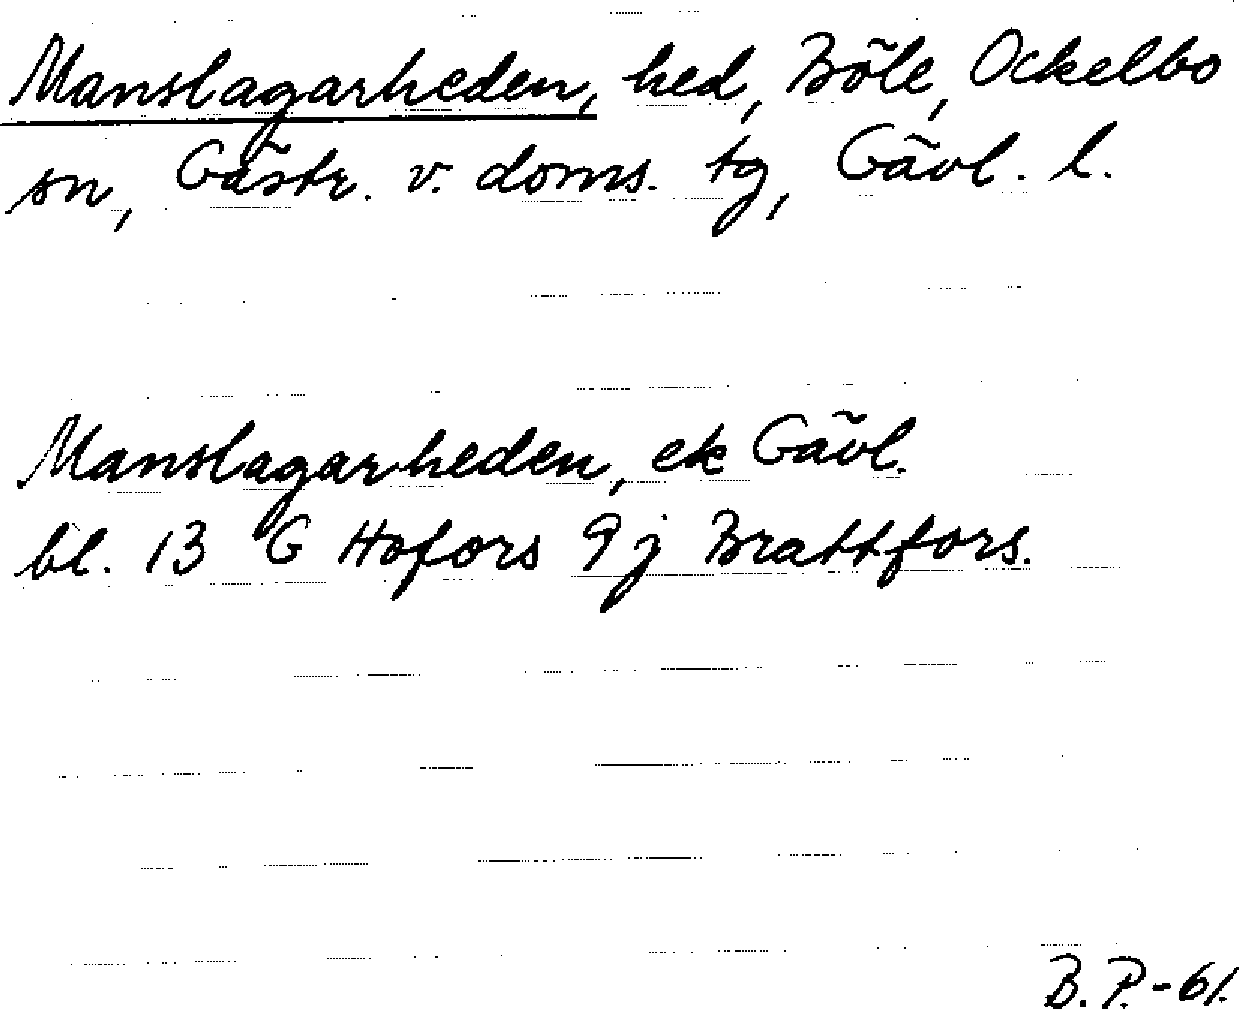 Manslagarheden, hed, Böle, Ockelbo
sn, Gästr. v. doms. tg, Gävl. l.
Manslagarheden, ek Gävl.
bl. 13 G Hofors 9j Brattfors.
B. P. -61.